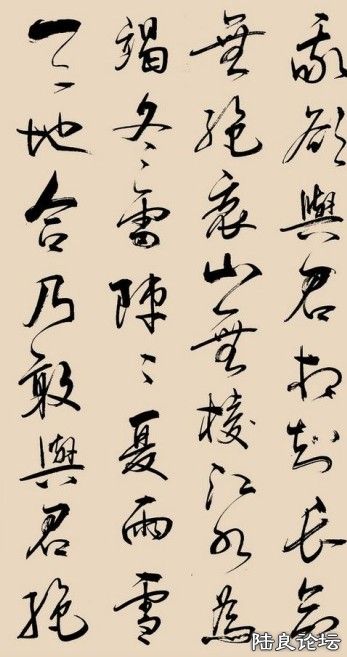 我欲與君相知長命
無絕衰山無棱江水為
竭冬雷陣〻夏雨雪
天地合乃敢與君絕
陆良论坛